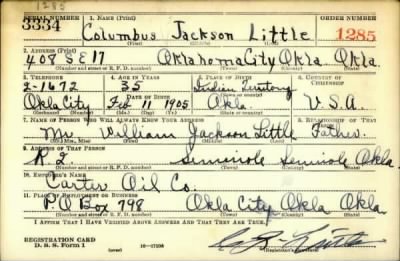 1285
SERIAL NUMBER 1. NAME (Print) ORDER NUMBER
3334 Columbus Jackson Little 1285
(First) (Middle) (Last)
2. ADDRESS (Print)
408 SE 17 Oklahoma City Okla Okla
(Number and street or R. F. D. number) (Town) (County) (State)
3. TELEPHONE 4. AGE IN YEARS 5. PLACE OF BIRTH 6. COUNTRY OF CITIZENSHIP
2-1672 35 Indian Territory
DATE OF BIRTH
Okla City Feb 11 1905 Okla. U.S.A.
(Exchange) (Number) (Mo.) (Day) (Yr.) (State or country)
7. NAME OF PERSON WHO WILL ALWAYS KNOW YOUR ADDRESS 8. RELATIONSHIP OF THAT PERSON
Mr. William Jackson Little Father.
(Mr., Mrs., Miss) (First) (Middle) (Last)
9. ADDRESS OF THAT PERSON
R2 Seminole Seminole Okla.
(Number and street or R. F. D. number) (Town) (County) (State)
10. EMPLOYER'S NAME
Carter Oil Co.
11. PLACE OF EMPLOYMENT OR BUSINESS
P.O Box 798 Okla City Okla Okla
(Number and street or R. F. D. number) (Town) (County) (State)
I AFFIRM THAT I HAVE VERIFIED ABOVE ANSWERS AND THAT THEY ARE TRUE.
REGISTRATION CARD
D. S. S. Form 1
(Registrant's signature)